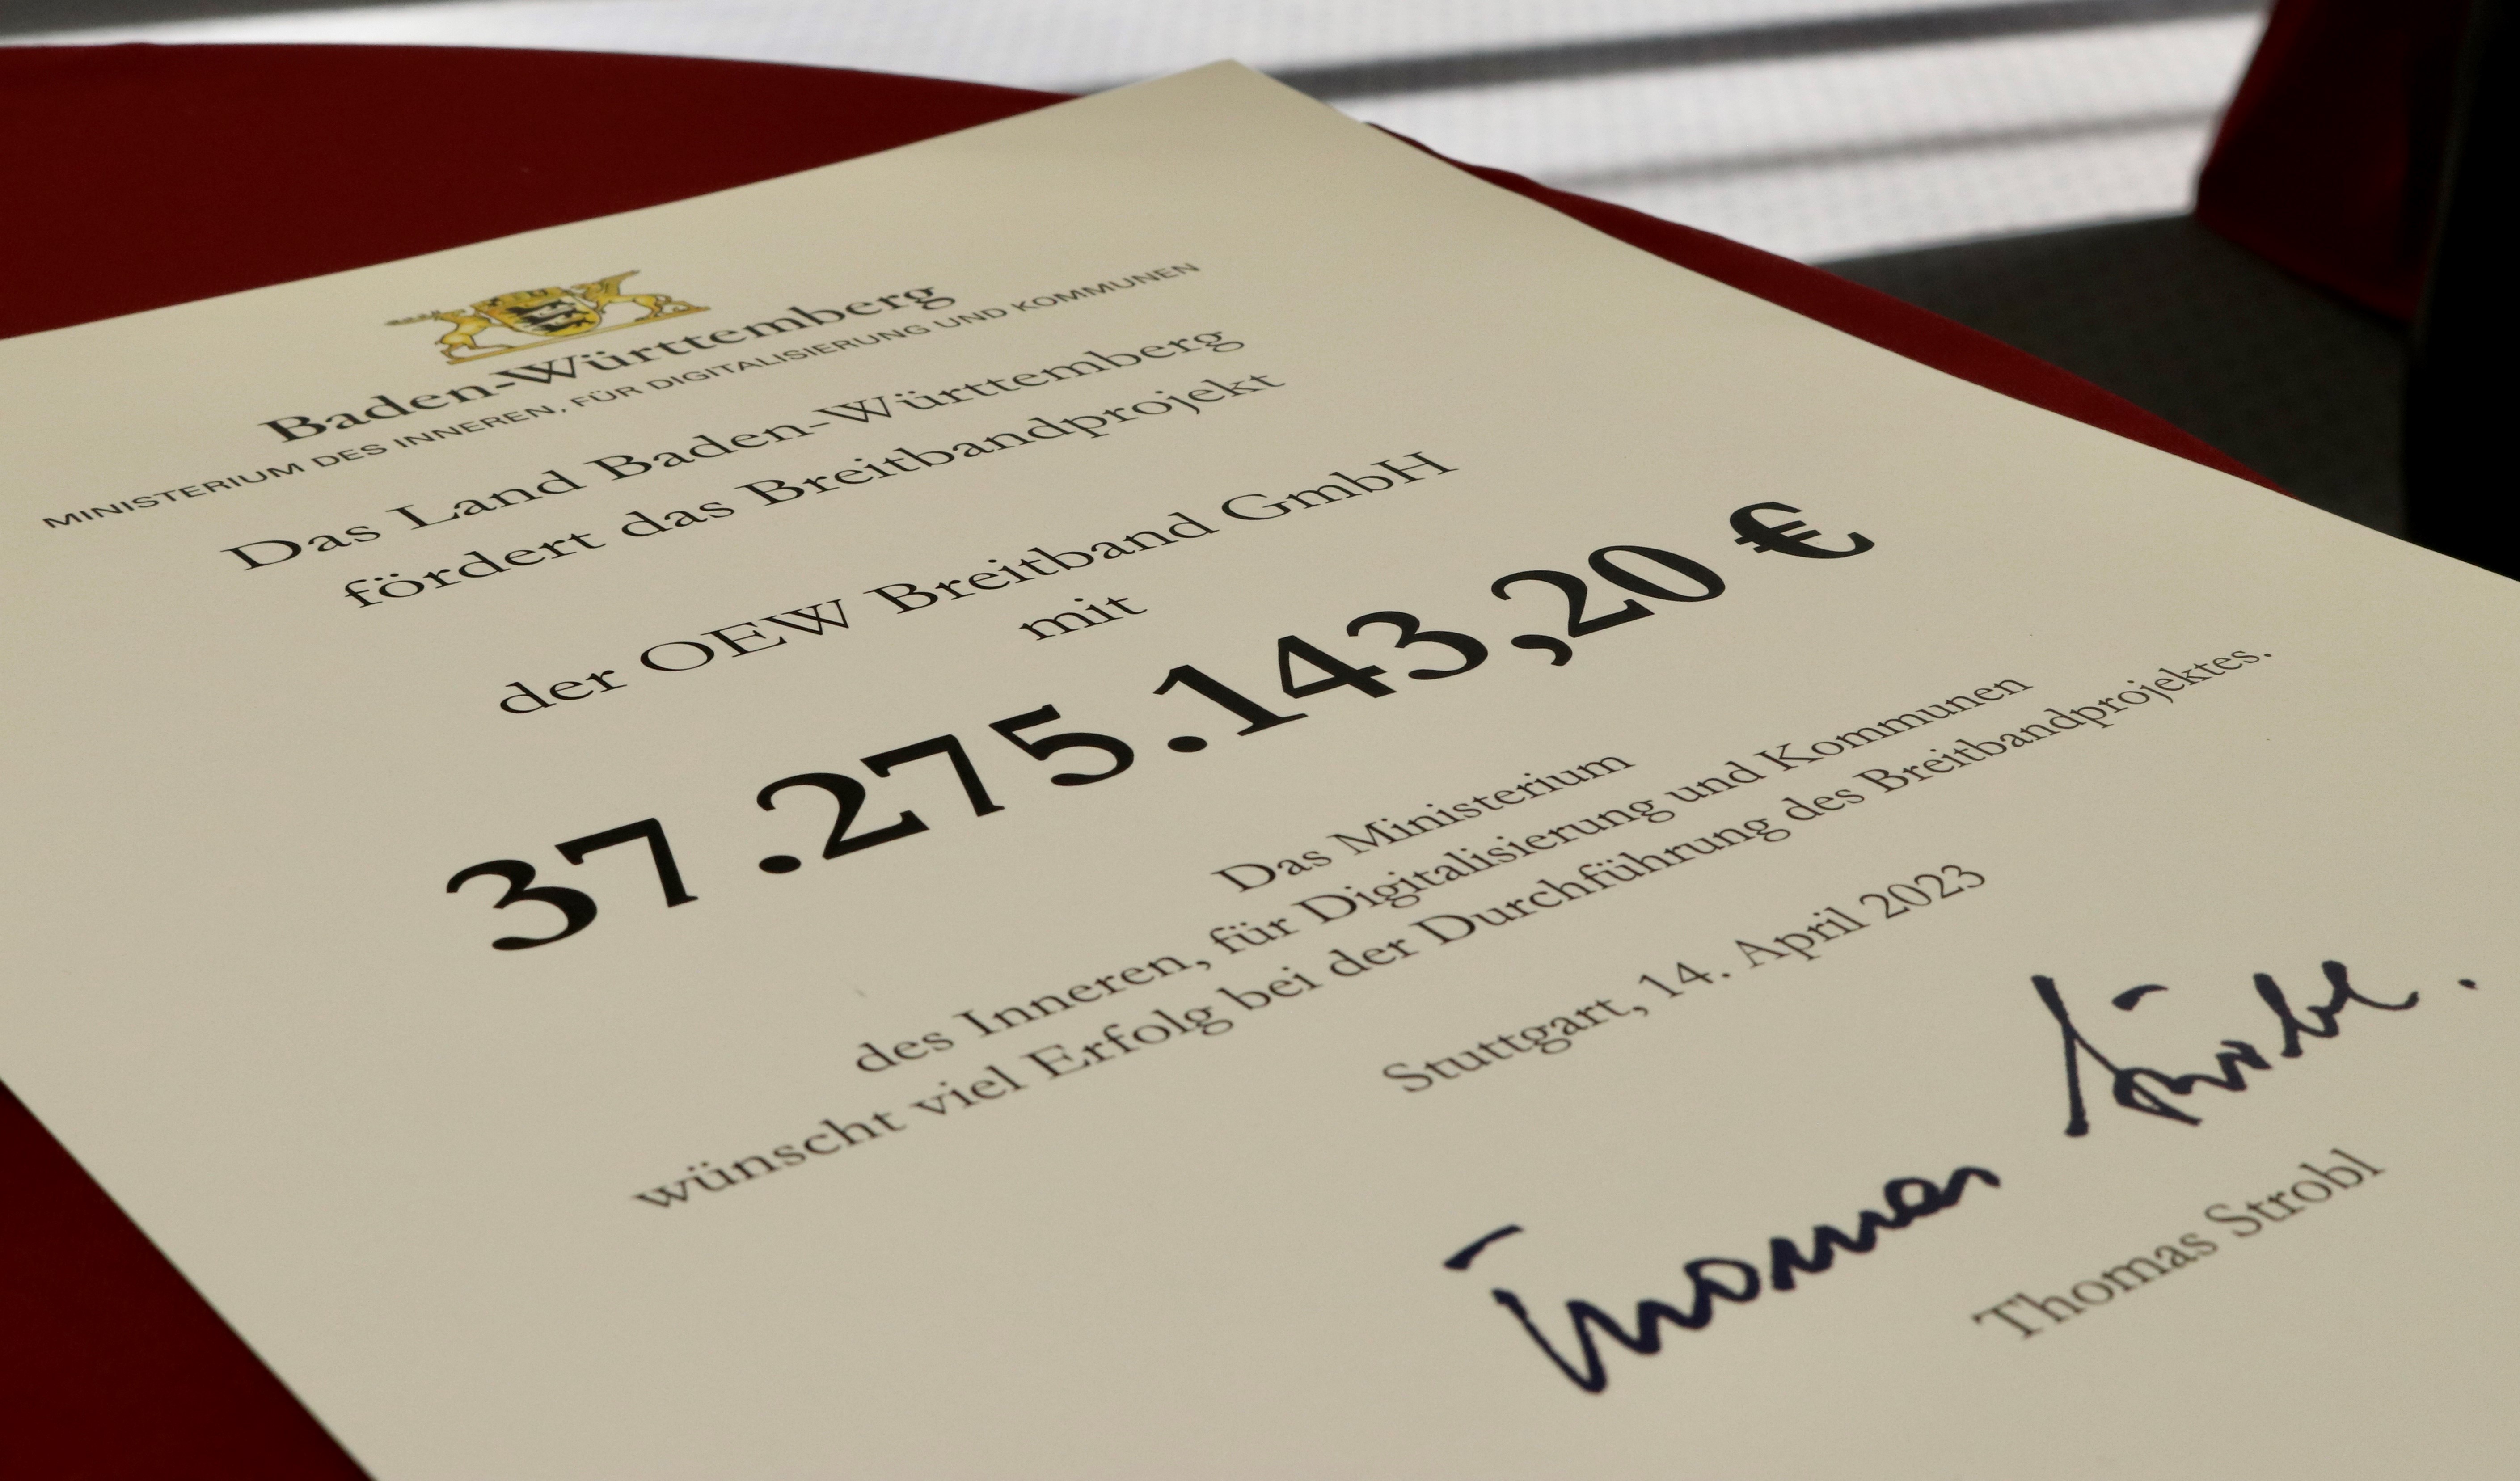 Baden-Württemberg
MINISTERIUM DES INNEREN, FÜR DIGITALISIERUNG UND KOMMUNEN
Das Land Baden-Württemberg
fördert das Breitbandprojekt
der OEW Breitband GmbH
mit
37.275.143,20 €
Das Ministerium
des Inneren, für Digitalisierung und Kommunen
wünscht viel Erfolg bei der Durchführung des Breitbandprojektes.
Stuttgart, 14. April 2023
Thomas Strobl.
Thomas Strobl